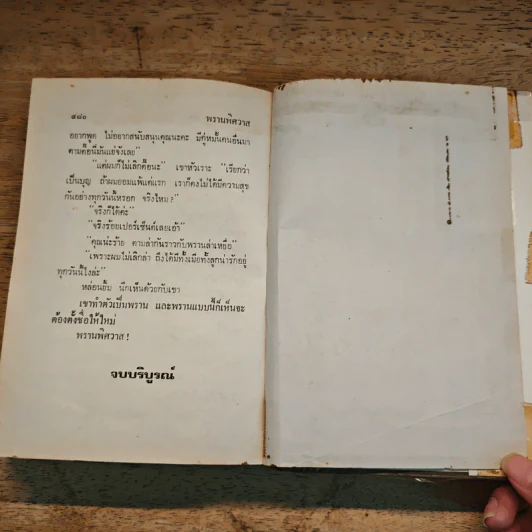 ๔๘๐ พรานพิศวาส
อยากพูด ไม่อยากสนับสนุนคุณนะคะ มีคู่หมั้นคนอื่นมา
ตามตื๊อนี่มันแย่จังเลย"
"แต่ผมก็ไม่เลิกตื๊อนะ" เขาหัวเราะ "เรียกว่า
เป็นบุญ ถ้าผมยอมแพ้แต่แรก เราก็คงไม่ได้มีความสุข
กันอย่างทุกวันนี้หรอก จริงไหม?"
"จริงก็ได้ค่ะ"
"จริงร้อยเปอร์เซ็นต์เลยเอ้า"
"คุณน่ะร้าย ตามล่ากันราวกับพรานล่าเหยื่อ"
"เพราะผมไม่เลิกล่า ถึงได้มีทั้งเมียทั้งลูกน่ารักอยู่
ทุกวันนี้ไงล่ะ"
หล่อนยิ้ม นึกเห็นด้วยกับเขา
เขาทำตัวเป็นพราน และพรานแบบนี้ก็เห็นจะ
ต้องตั้งชื่อให้ใหม่
พรานพิศวาส!
จบบริบูรณ์